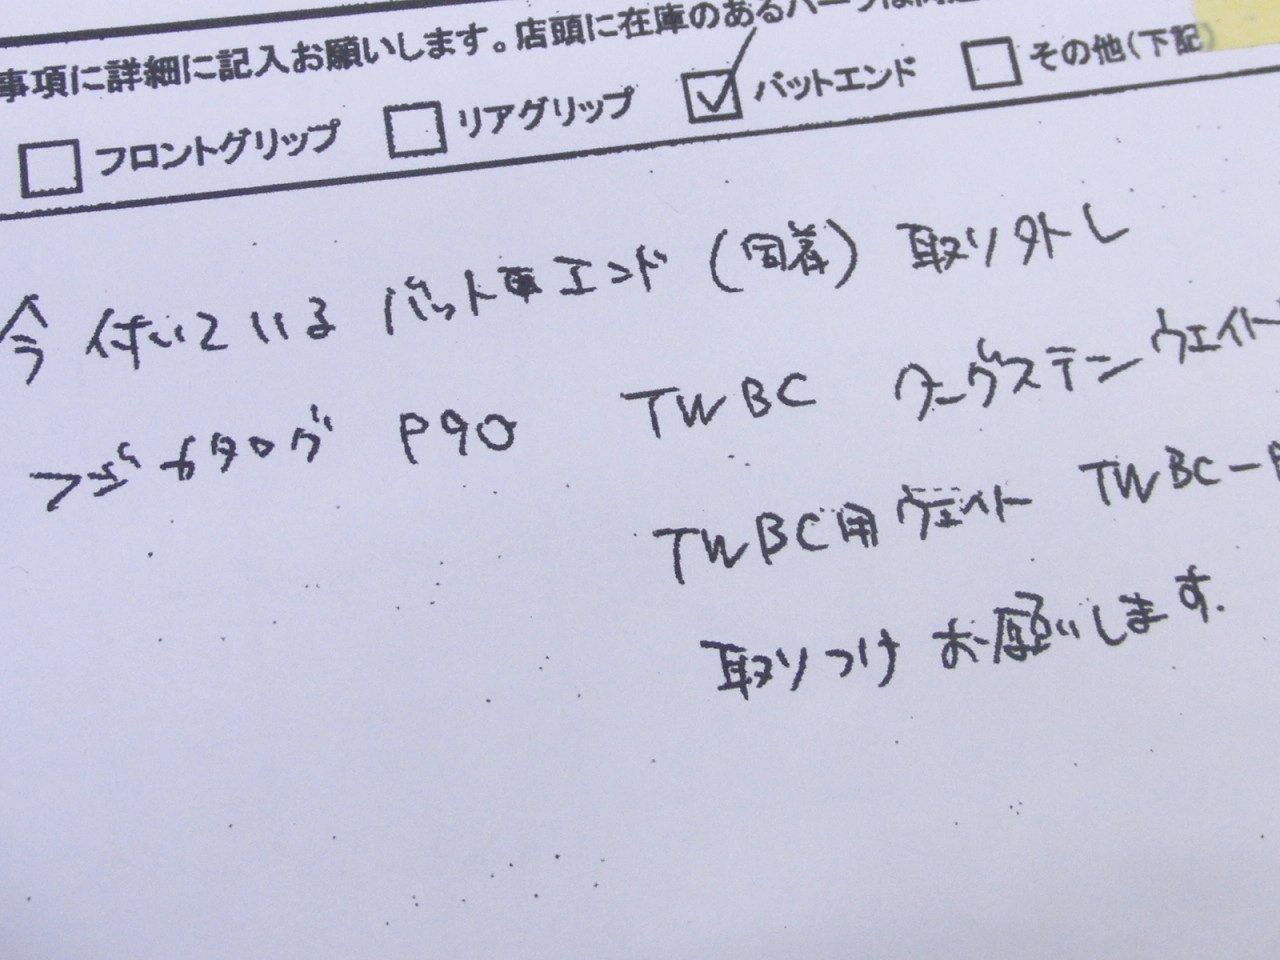 事項に詳細に記入お願いします。店頭に在庫のあるパーツは
フロントグリップ リアグリップ バットエンド その他(下記)
今付いている バットエンド (固着) 取り外し
フジカタログ P90 TWBC タングステンウェイト
TWBC用ウェイト TWBC-
取りつけ お願いします.